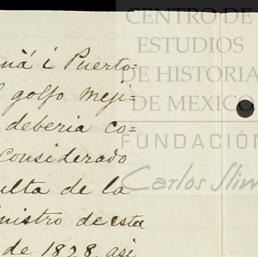 CENTRO DE
ESTUDIOS
DE HISTORIA
DE MEXICO
FUNDACIÓN
Carlos Slim
má i Puerto-
golfo meji-
deberia co-
considerado
ulta de la
nistro de esta
de 1828, asi